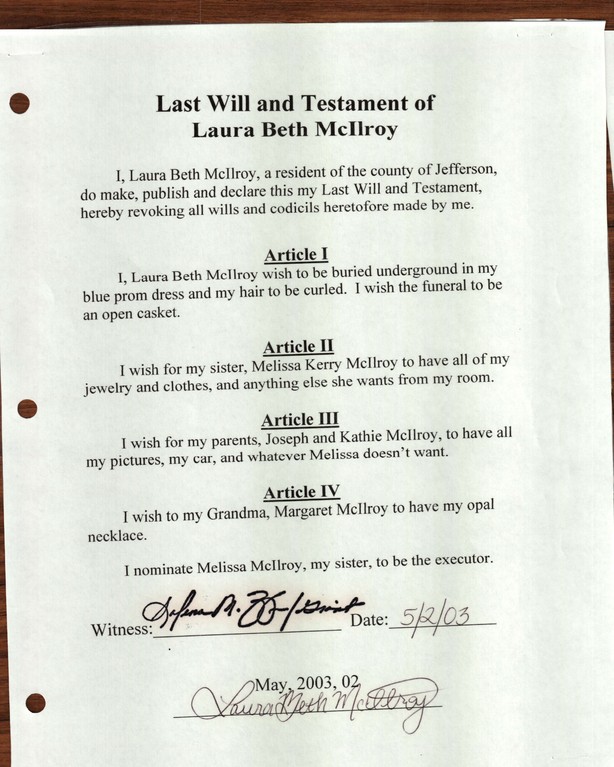 Last Will and Testament of
Laura Beth McIlroy
I, Laura Beth McIlroy, a resident of the county of Jefferson,
do make, publish and declare this my Last Will and Testament,
hereby revoking all wills and codicils heretofore made by me.
Article I
I, Laura Beth McIlroy wish to be buried underground in my
blue prom dress and my hair to be curled. I wish the funeral to be
an open casket.
Article II
I wish for my sister, Melissa Kerry McIlroy to have all of my
jewelry and clothes, and anything else she wants from my room.
Article III
I wish for my parents, Joseph and Kathie McIlroy, to have all
my pictures, my car, and whatever Melissa doesn't want.
Article IV
I wish to my Grandma, Margaret McIlroy to have my opal
necklace.
I nominate Melissa McIlroy, my sister, to be the executor.
Witness: Date: 5/2/03
May, 2003, 02
Laura Beth McIlroy